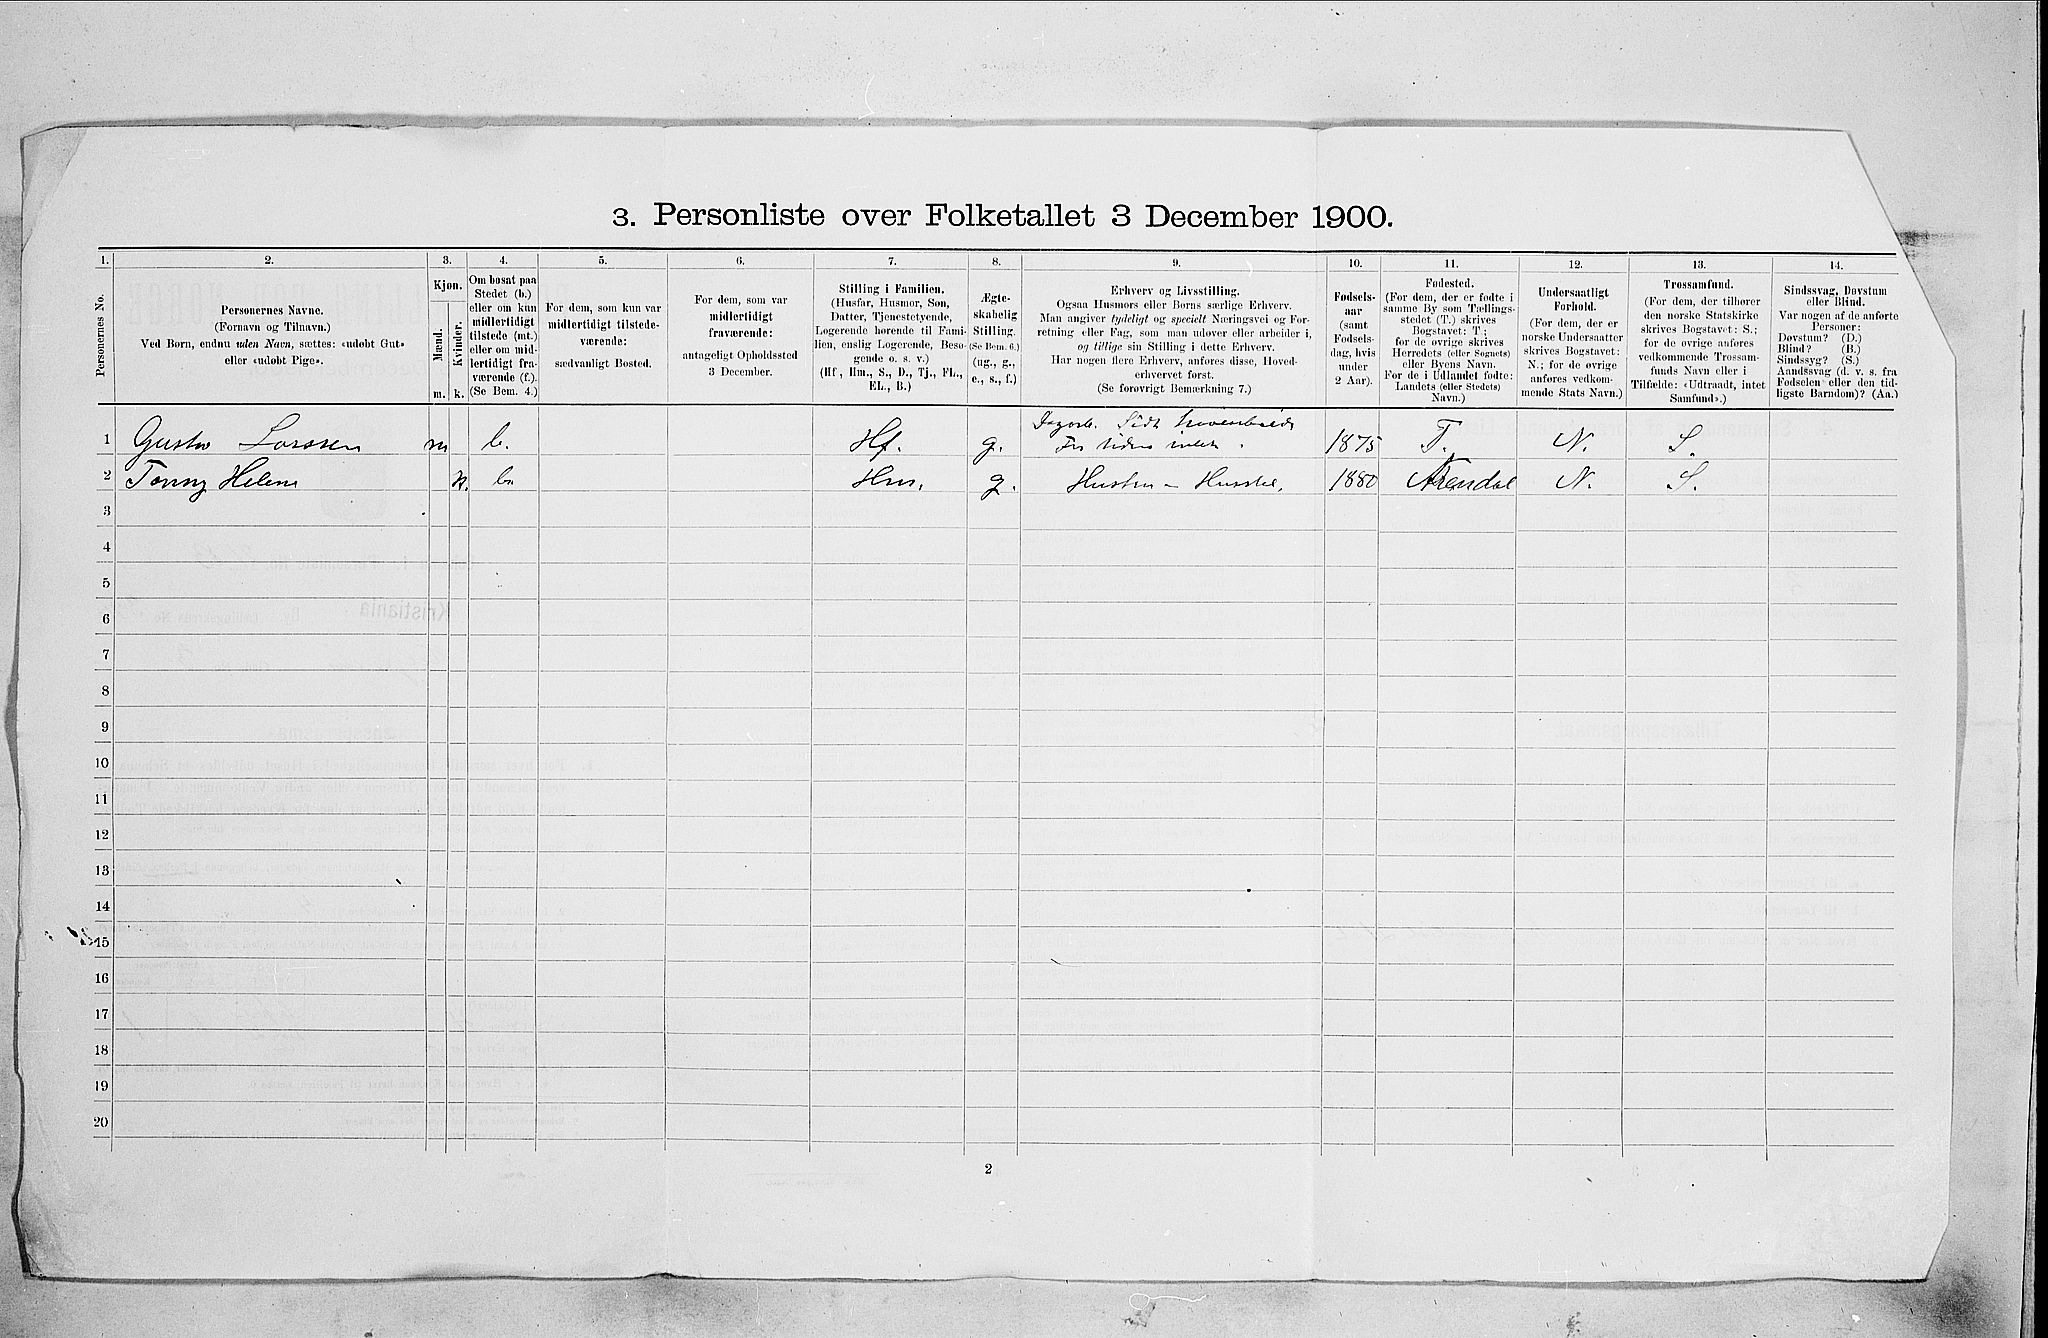 3. Personliste over Folketallet 3 December 1900.
1. 2. 3. 4. 5. 6. 7. 8. 9. 10. 11. 12. 13. 14.
Personernes No.
Personernes Navne.
(Fornavn og Tilnavn.)
Ved Børn, endnu uden Navn, sættes: «udøbt Gut»
eller «udøbt Pige».
Kjøn.
Mænd.
Kvinder.
m. k.
Om bosat paa
Stedet (b.)
eller om kun
midlertidigt
tilstede (mt.)
eller om mid-
lertidigt fra-
værende (f.).
(Se Bem. 4.)
For dem, som kun var
midlertidigt tilstede-
værende:
sædvanligt Bosted.
For dem, som var
midlertidigt
fraværende:
antageligt Opholdssted
3 December.
Stilling i Familien.
(Husfar, Husmor, Søn,
Datter, Tjenestetyende,
Logerende hørende til Fami-
lien, enslig Logerende, Besø-
gende o. s. v.)
(Hf., Hm., S., D., Tj., FL.,
EL., B.)
Ægte-
skabelig
Stilling.
(Se Bem. 6.)
(ug., g.,
e., s., f.)
Erhverv og Livsstilling.
Ogsaa Husmors eller Børns særlige Erhverv.
Man angiver tydeligt og specielt Næringsvei og For-
retning eller Fag, som man udøver eller arbeider i,
og tillige sin Stilling i dette Erhverv.
Har nogen flere Erhverv, anføres disse, Hoved-
erhvervet først.
(Se forøvrigt Bemærkning 7.)
Fødsels-
aar
(samt
Fødsels-
dag, hvis
under
2 Aar).
Fødested.
(For dem, der er fødte i
samme By som Tællings-
stedet (T.) skrives
Bogstavet: T.;
for de øvrige skrives
Herredets (eller Sognets)
eller Byens Navn.
For de i Udlandet fødte:
Landets (eller Stedets)
Navn.)
Undersaatligt
Forhold.
(For dem, der er
norske Undersaatter
skrives Bogstavet:
N.; for de øvrige
anføres vedkom-
mende Stats Navn.)
Trossamfund.
(For dem, der tilhører
den norske Statskirke
skrives Bogstavet: S.;
for de øvrige anføres
vedkommende Trossam-
funds Navn eller i
Tilfælde: «Udtraadt, intet
Samfund».)
Sindssvag, Døvstum
eller Blind.
Var nogen af de anførte
Personer:
Døvstum? (D.)
Blind? (B.)
Sindssyg? (S.)
Aandssvag (d. v. s. fra
Fødselen eller den tid-
ligste Barndom)? (Aa.)
1 Gustav Larssen m b. Hf. g. 1875 T. N. S.
2 Tonny Helene k. b. Hm. g. Hustru - Husstel. 1880 Arendal N. S.
3
4
5
6
7
8
9
10
11
12
13
14
15
16
17
18
19
20
2